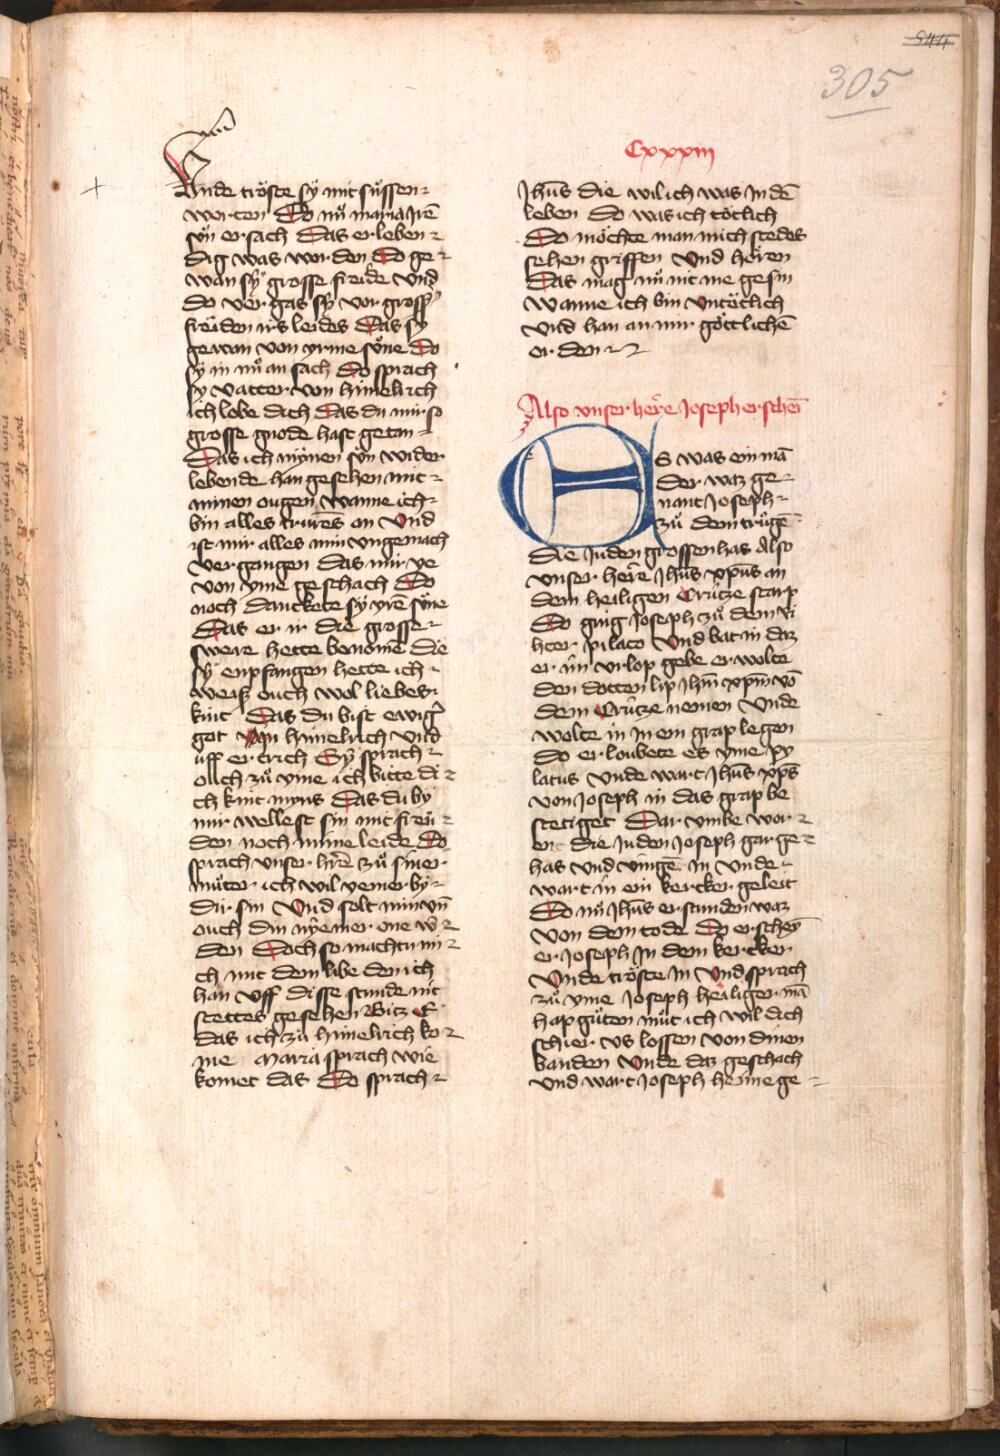 544
305
Cxxxiii
Vnde tröste sÿ mit süssen
worten Do nů maria irē
sůn ersach Das er leben
dig was worden do ge
wan sÿ grosse freide vnd
do vergas sÿ vor grossē
freüden irs leides Das sÿ
gewan von yrme sůne Do
sÿ in nů an sach Do sprach
sy vatter von himelrich
ich lobe dich Das du mir so
grosse gnode hast getan
Das ich mÿnen sůn wider
lebende han gesehen mit
minen ougen wanne ich
bin alles trurēs an Vnd
ist mir alles min vngemach
vergangen das mir ye
von yme geschach Do
noch danckete sÿ yrē sůne
Das er ir die grosse
swere hette benomē die
sÿ enpfangen hette ich
weisz ouch wol liebes
kint Das du bist ewig
got von himelrich vnd
uff ertrich Sÿ sprach
ouch zů yme ich bitte di
ch kint myns Das du by
mir wellest sin mit freü
den noch mime leide Do
sprach vnser hr̄e zů siner
můter ich wil yemer by
dir sin Vnd solt min vn̄
ouch din nÿemer one w
den Doch so machtu mi
ch mit dem libe den ich
han vff disse stunde nit
stettes gesehen Bitz
das ich zů himelrich ko
me maria sprach wie
komet das Do sprach
Jhūs die wil ich was in dē
leben do was ich tötlich
Do möchte man mich stedes
sehen griffen Vnd hören
Das mag nů nit me gesin
wanne ich bin vntötlich
vnd han an mir göttlichē
orden
Also vnser her̄e Joseph erschē
ES was ein mā
der waz ge
nant Joseph
zů dem trůgē
die Juden grossen has Also
vnser her̄e Jhūs xp̄us an
dem heiligen Crütze starp
Do ging Joseph zů dem ri
hter pilato Vnd bat in daz
er im vrlop gebe er wolte
den dotten lip Jhm̄ xpm̄ vō
dem Crütze nemen Vnde
wolte in in ein grap legen
Do erloubete es yme py
latus Vnde wart Jhūs xp̄s
von Joseph in das grap be
stetiget Dar vmbe wor
en die Juden Joseph gar ge
has vnd vingē in vnde
wart in ein kercker geleit
Do nů Jhūs erstunden waz
von dem tode Do erschey
er Joseph in dem kercker
Vnde tröste in Vnd sprach
zů yme Joseph heiliger mā
hap gůten můt ich wil dich
schier vs lossen von dinen
banden Vnde daz geschach
vnd wart Joseph heime ge